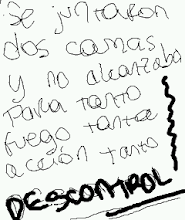 Se juntaron
dos camas
y no alcanzaba
para tanto
fuego tanta
acción tanto
DESCONTROL